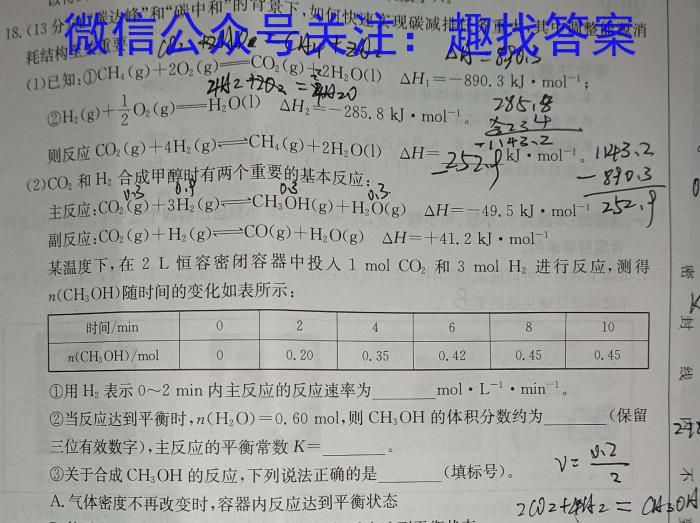 微信公众号关注：趣找答案
18.(13分)“碳达峰”和“碳中和”的背景下,如何快速实现碳减排
耗结构至关重要
(1)已知:①CH₄(g)+2O₂(g)══CO₂(g)+2H₂O(l) ΔH₁=-890.3 kJ·mol⁻¹;
②H₂(g)+½O₂(g)══H₂O(l) ΔH₂=-285.8 kJ·mol⁻¹。
285.8
1143.2
则反应 CO₂(g)+4H₂(g)⇌CH₄(g)+2H₂O(l) ΔH=-252.9 kJ·mol⁻¹。
1143.2
-890.3
252.9
(2)CO₂ 和 H₂ 合成甲醇时有两个重要的基本反应:
0.3 0.9 0.3 0.3
主反应:CO₂(g)+3H₂(g)⇌CH₃OH(g)+H₂O(g) ΔH=-49.5 kJ·mol⁻¹
副反应:CO₂(g)+H₂(g)⇌CO(g)+H₂O(g) ΔH=+41.2 kJ·mol⁻¹
某温度下,在 2 L 恒容密闭容器中投入 1 mol CO₂ 和 3 mol H₂ 进行反应,测得
n(CH₃OH)随时间的变化如表所示:
时间/min 0 2 4 6 8 10
n(CH₃OH)/mol 0 0.20 0.35 0.42 0.45 0.45
①用 H₂ 表示 0~2 min 内主反应的反应速率为________mol·L⁻¹·min⁻¹。
②当反应达到平衡时,n(H₂O)=0.60 mol,则 CH₃OH 的体积分数约为________(保留
三位有效数字),主反应的平衡常数 K=________。
V=0.2/2
③关于合成 CH₃OH 的反应,下列说法正确的是________(填标号)。
A.气体密度不再改变时,容器内反应达到平衡状态
密
封
线
不